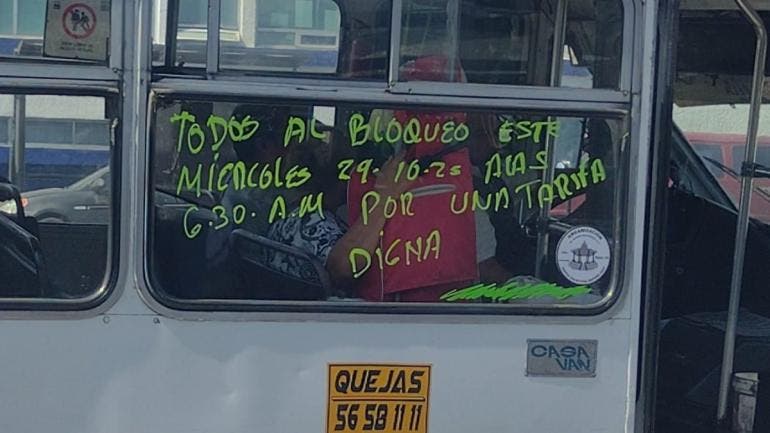 TODOS AL BLOQUEO ESTE
MIERCOLES 29-10-25 ALAS
6.30.A.M POR UNA TARIFA
DIGNA
CASA
VAN
QUEJAS
56 58 11 11